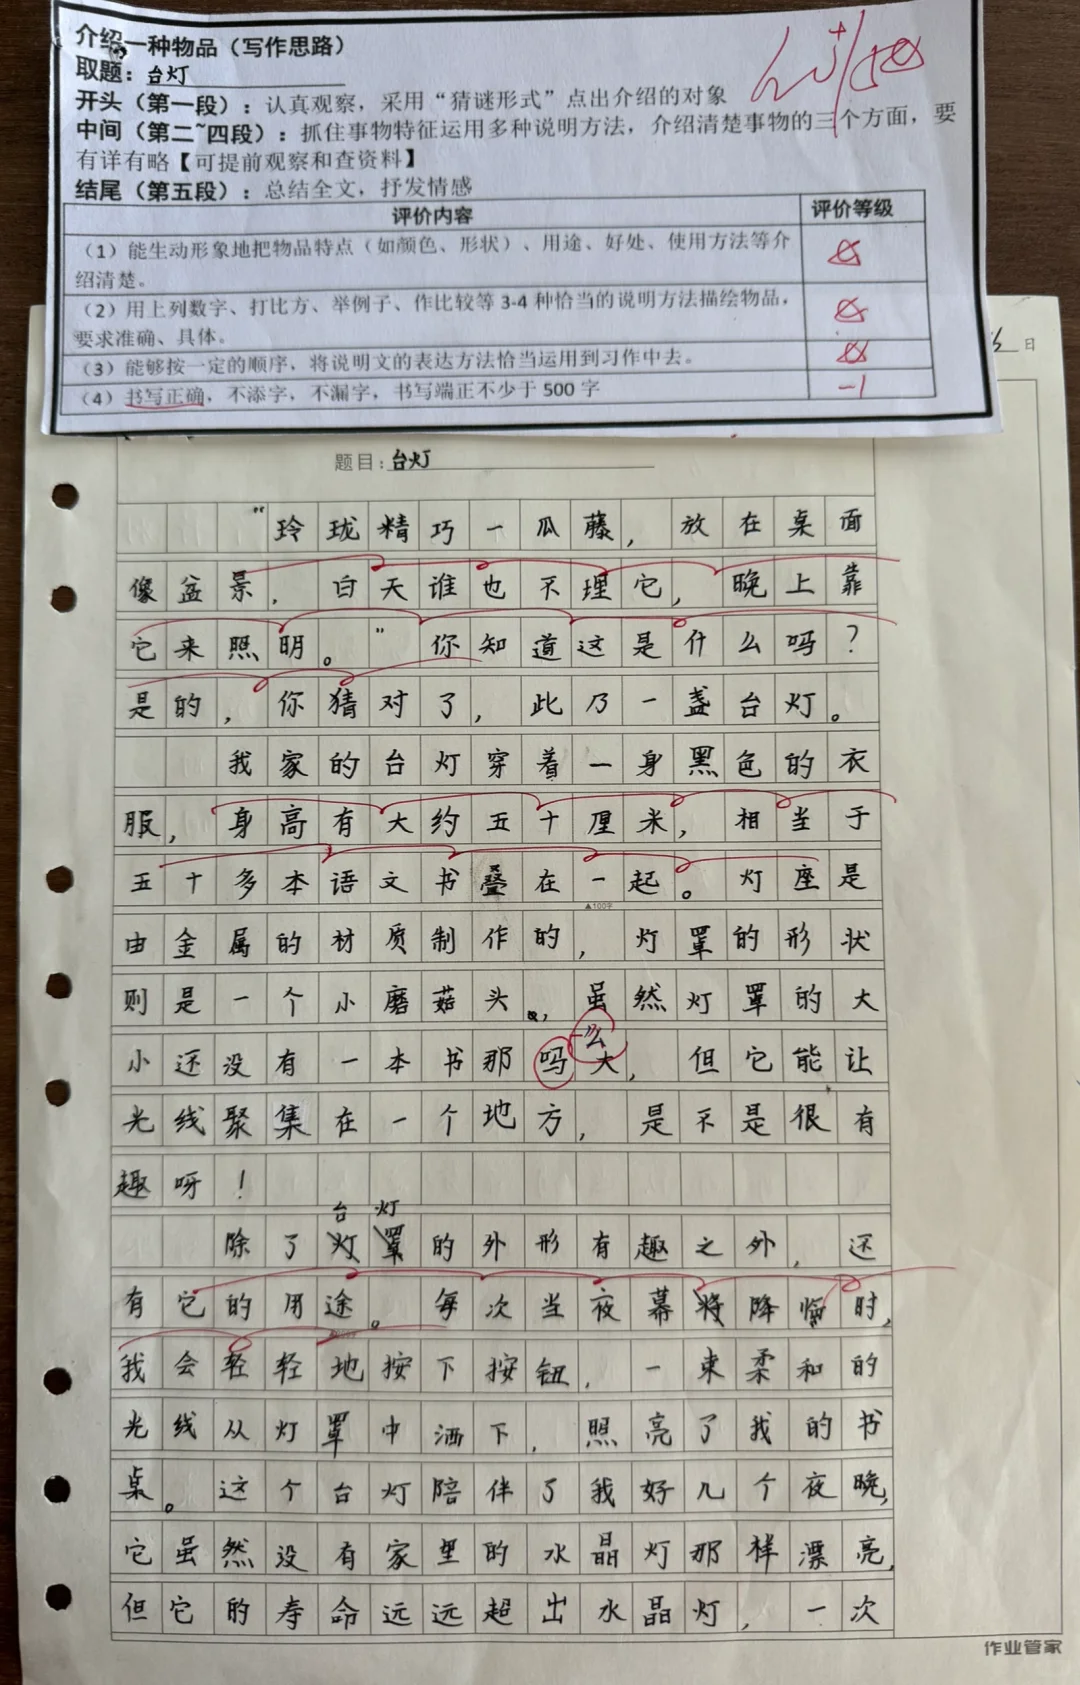 介绍一种物品（写作思路）
取题：台灯
开头（第一段）：认真观察，采用“猜谜形式”点出介绍的对象
中间（第二~四段）：抓住事物特征运用多种说明方法，介绍清楚事物的三个方面，要
有详有略【可提前观察和查资料】
结尾（第五段）：总结全文，抒发情感
评价内容 评价等级
（1）能生动形象地把物品特点（如颜色、形状）、用途、好处、使用方法等介
绍清楚。
（2）用上列数字、打比方、举例子、作比较等 3-4 种恰当的说明方法描绘物品，
要求准确、具体。
（3）能够按一定的顺序，将说明文的表达方法恰当运用到习作中去。
（4）书写正确，不添字，不漏字，书写端正不少于 500 字 -1
日
题目：台灯
“玲珑精巧一瓜藤，放在桌面
像盆景，白天谁也不理它，晚上靠
它来照明。”你知道这是什么吗？
是的，你猜对了，此乃一盏台灯。
我家的台灯穿着一身黑色的衣
服，身高有大约五十厘米，相当于
五十多本语文书叠在一起。灯座是
▲100字
由金属的材质制作的，灯罩的形状
则是一个小磨菇头，虽然灯罩的大
么
小还没有一本书那吗大，但它能让
光线聚集在一个地方，是不是很有
趣呀！
台灯
除了灯罩的外形有趣之外，还
有它的用途。每次当夜幕将降临时，
我会轻轻地按下按钮，一束柔和的
光线从灯罩中洒下，照亮了我的书
桌。这个台灯陪伴了我好几个夜晚，
它虽然没有家里的水晶灯那样漂亮，
但它的寿命远远超出水晶灯，一次
作业管家